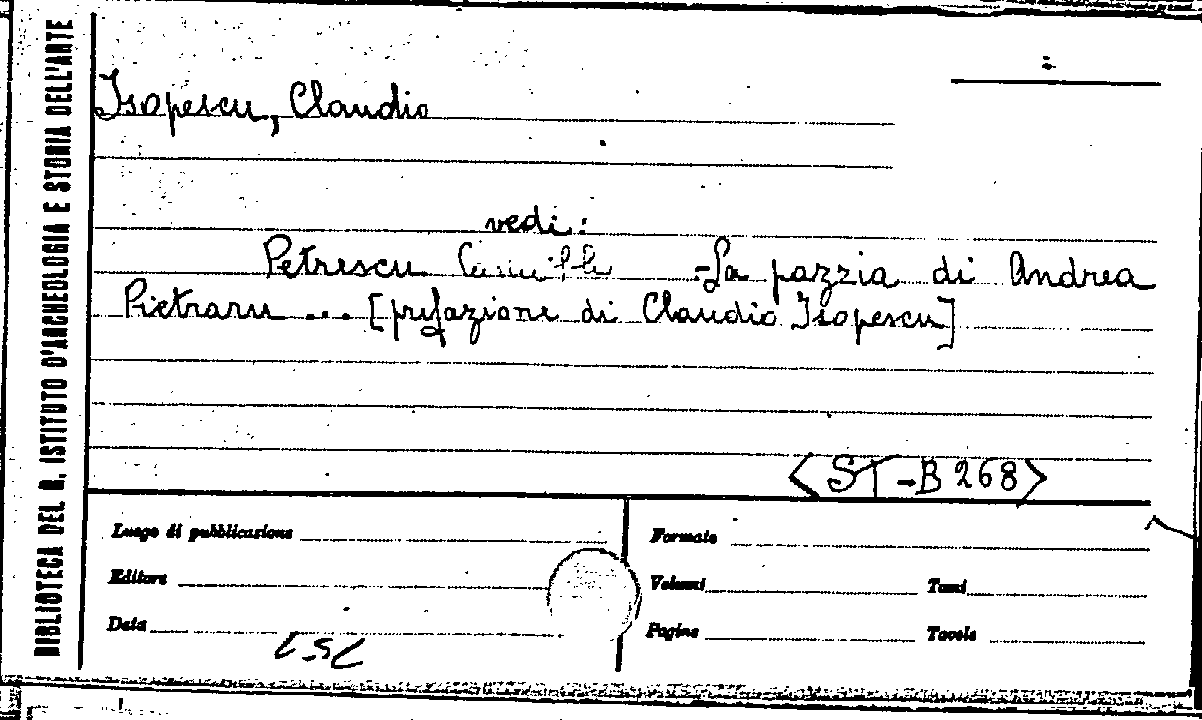 BIBLIOTECA DEL R. ISTITUTO D'ARCHEOLOGIA E STORIA DELL'ARTE
Isopescu, Claudio
vedi:
Petrescu Camillo - La pazzia di Andrea
Pietraru ... [prefazione di Claudio Isopescu]
<ST-B 268>
Luogo di pubblicazione
Formato
Editore
Volumi
Tomi
Data
Pagine
Tavole